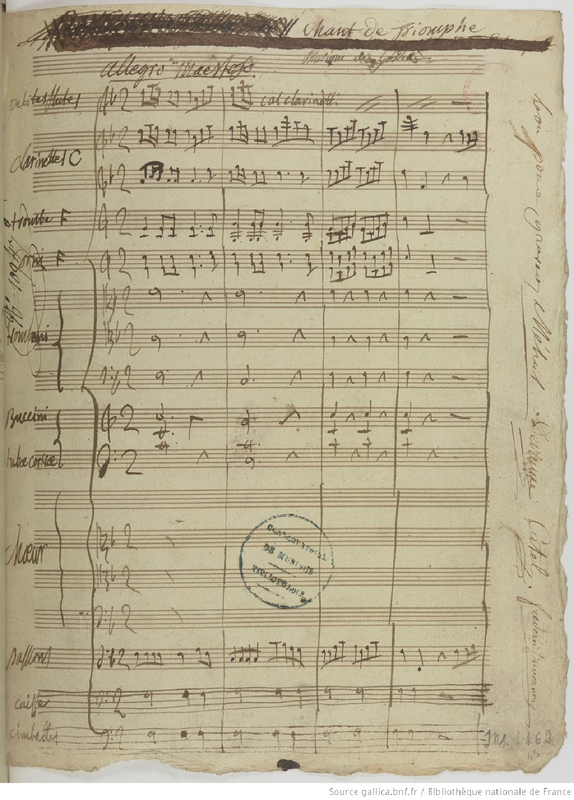 Chant de Triomphe
Musique de Gossec
Allegro Maestoso.
Petites flutes
col clarinetti
Clarinettes C
Trombe F
Corni F
Tromboni
Buccini
Tube corbe
Chœur
Bassons
Caisse
Cimballes
bon pour graver, Méhul
Catel.
CONSERVATOIRE
DE MUSIQUE
BIBLIOTHÈQUE
Source gallica.bnf.fr / Bibliothèque nationale de France